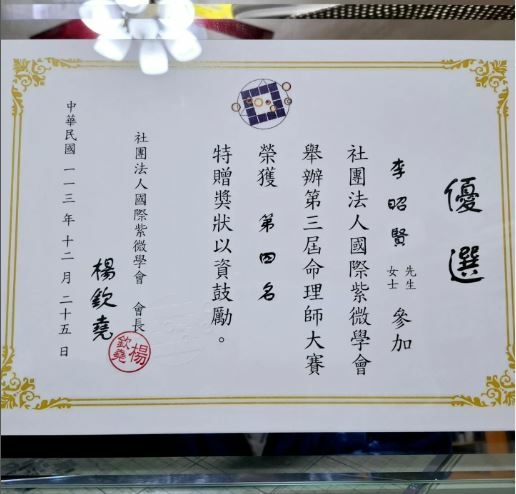 優選
李昭賢 先生 女士 參加
社團法人國際紫微學會
舉辦第三屆命理師大賽
榮獲 第四名
特贈獎狀以資鼓勵。
社團法人國際紫微學會 會長
楊欽堯
楊欽堯
中華民國 一一三 年 十二 月 二十五 日